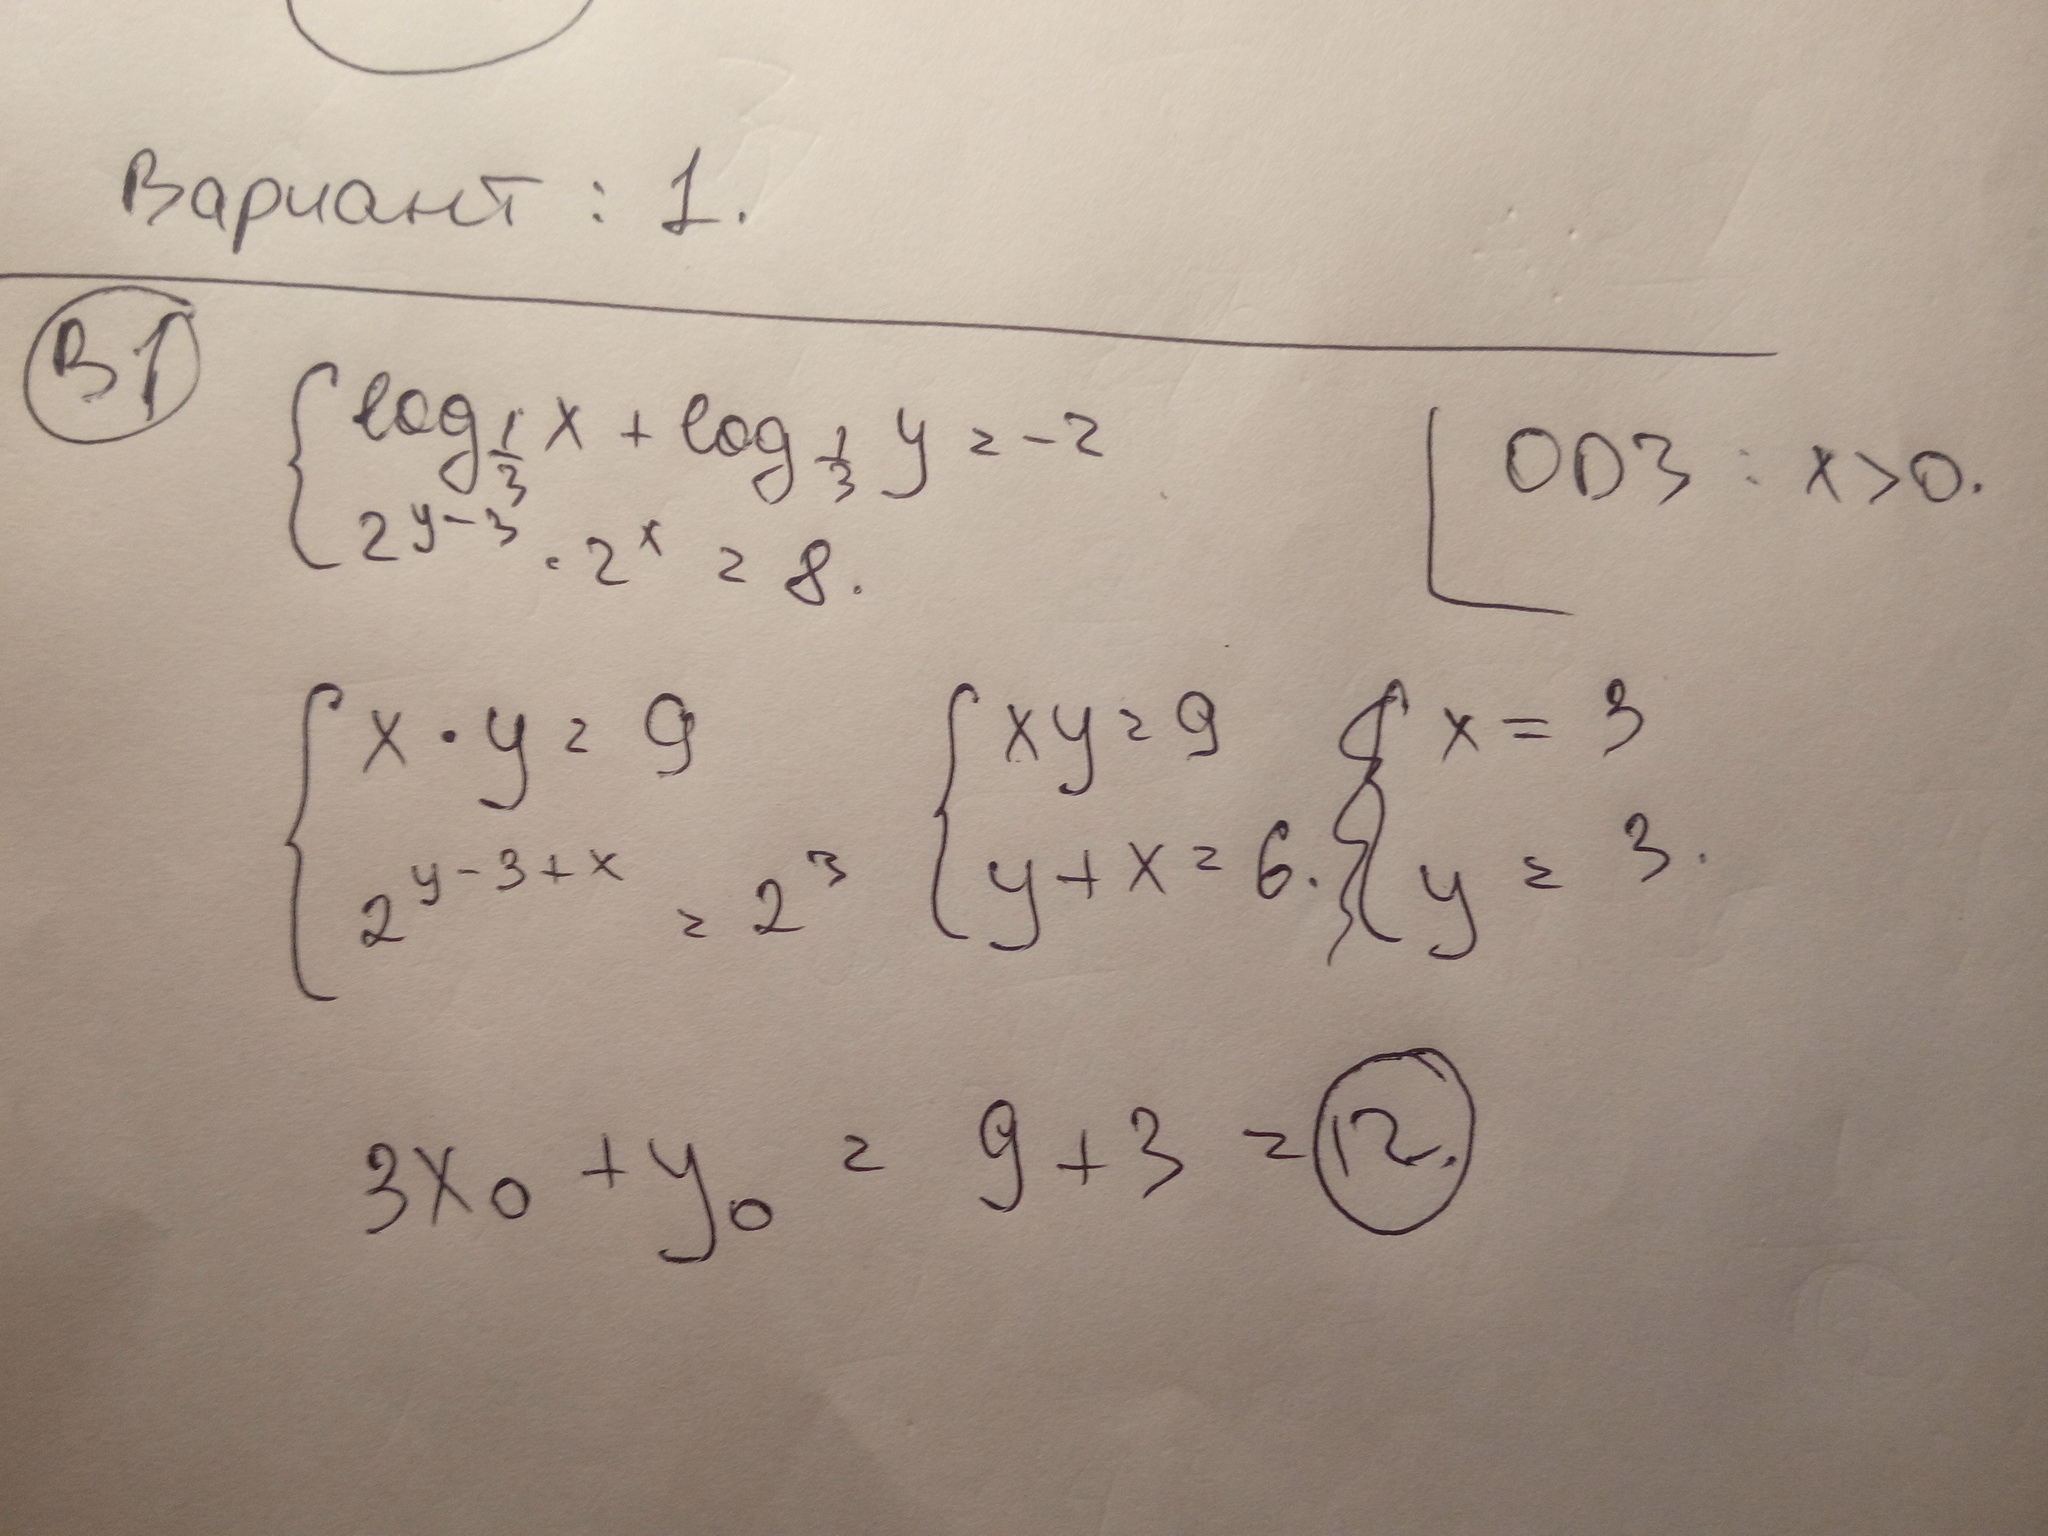 Вариант : 1.
В1
log_{1/3} x + log_{1/3} y = -2
2^{y-3} · 2^x = 8.
ОDЗ : x>0.
x · y = 9
2^{y-3+x} = 2^3
xy = 9
y + x = 6.
x = 3
y = 3.
3x₀ + y₀ = 9 + 3 = 12.